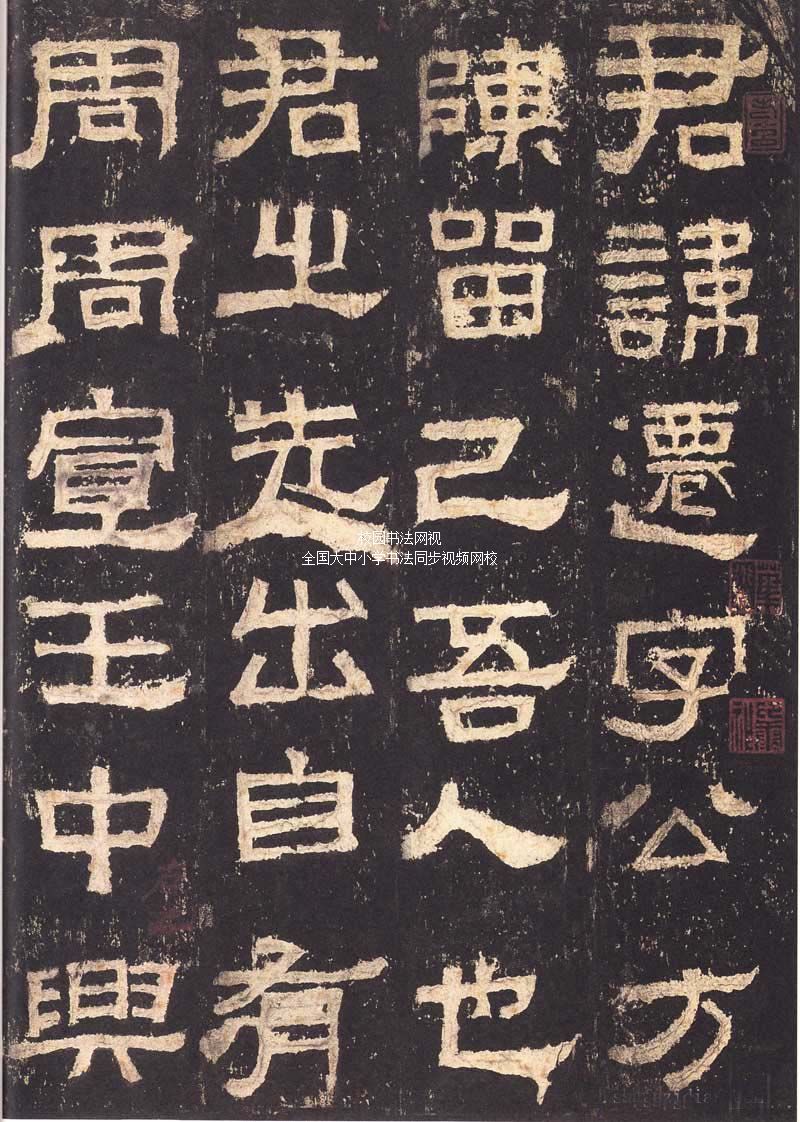 君諱遷字公方
陳留己吾人也
君之先出自有
周周宣王中興
校园书法网视
全国大中小学书法同步视频网校